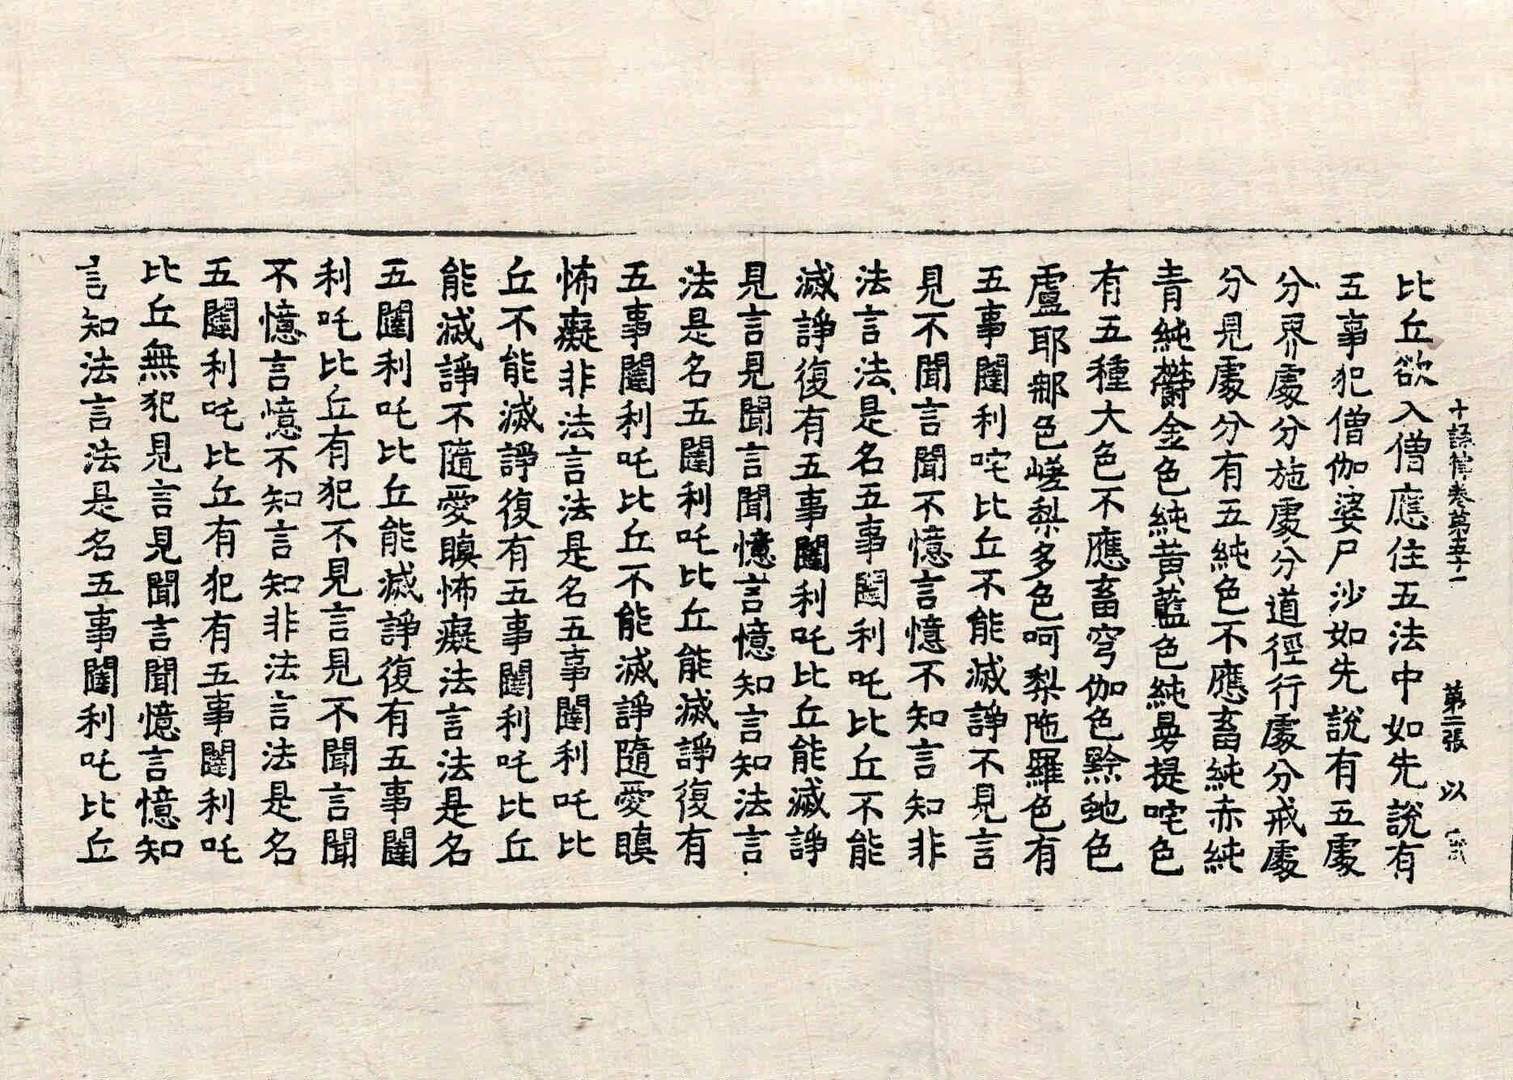 十誦律卷第五十一　第二張　以
比丘欲入僧應住五法中如先說有
五事犯僧伽婆尸沙如先說有五處
分界處分施處分道徑行處分戒處
分見處分有五純色不應畜純赤純
青純欝金色純黃藍色純曼提咤色
有五種大色不應畜穹伽色黲虵色
盧耶那色嵯梨多色呵梨陁羅色有
五事闥利咤比丘不能滅諍不見言
見不聞言聞不憶言憶不知言知非
法言法是名五事闥利吒比丘不能
滅諍復有五事闥利吒比丘能滅諍
見言見聞言聞憶言憶知言知法言
法是名五闥利吒比丘能滅諍復有
五事闥利吒比丘不能滅諍隨愛瞋
怖癡非法言法是名五事闥利吒比
丘不能滅諍復有五事闥利吒比丘
能滅諍不隨愛瞋怖癡法言法是名
五闥利吒比丘能滅諍復有五事闥
利吒比丘有犯不見言見不聞言聞
不憶言憶不知言知非法言法是名
五闥利吒比丘有犯有五事闥利吒
比丘無犯見言見聞言聞憶言憶知
言知法言法是名五事闥利吒比丘